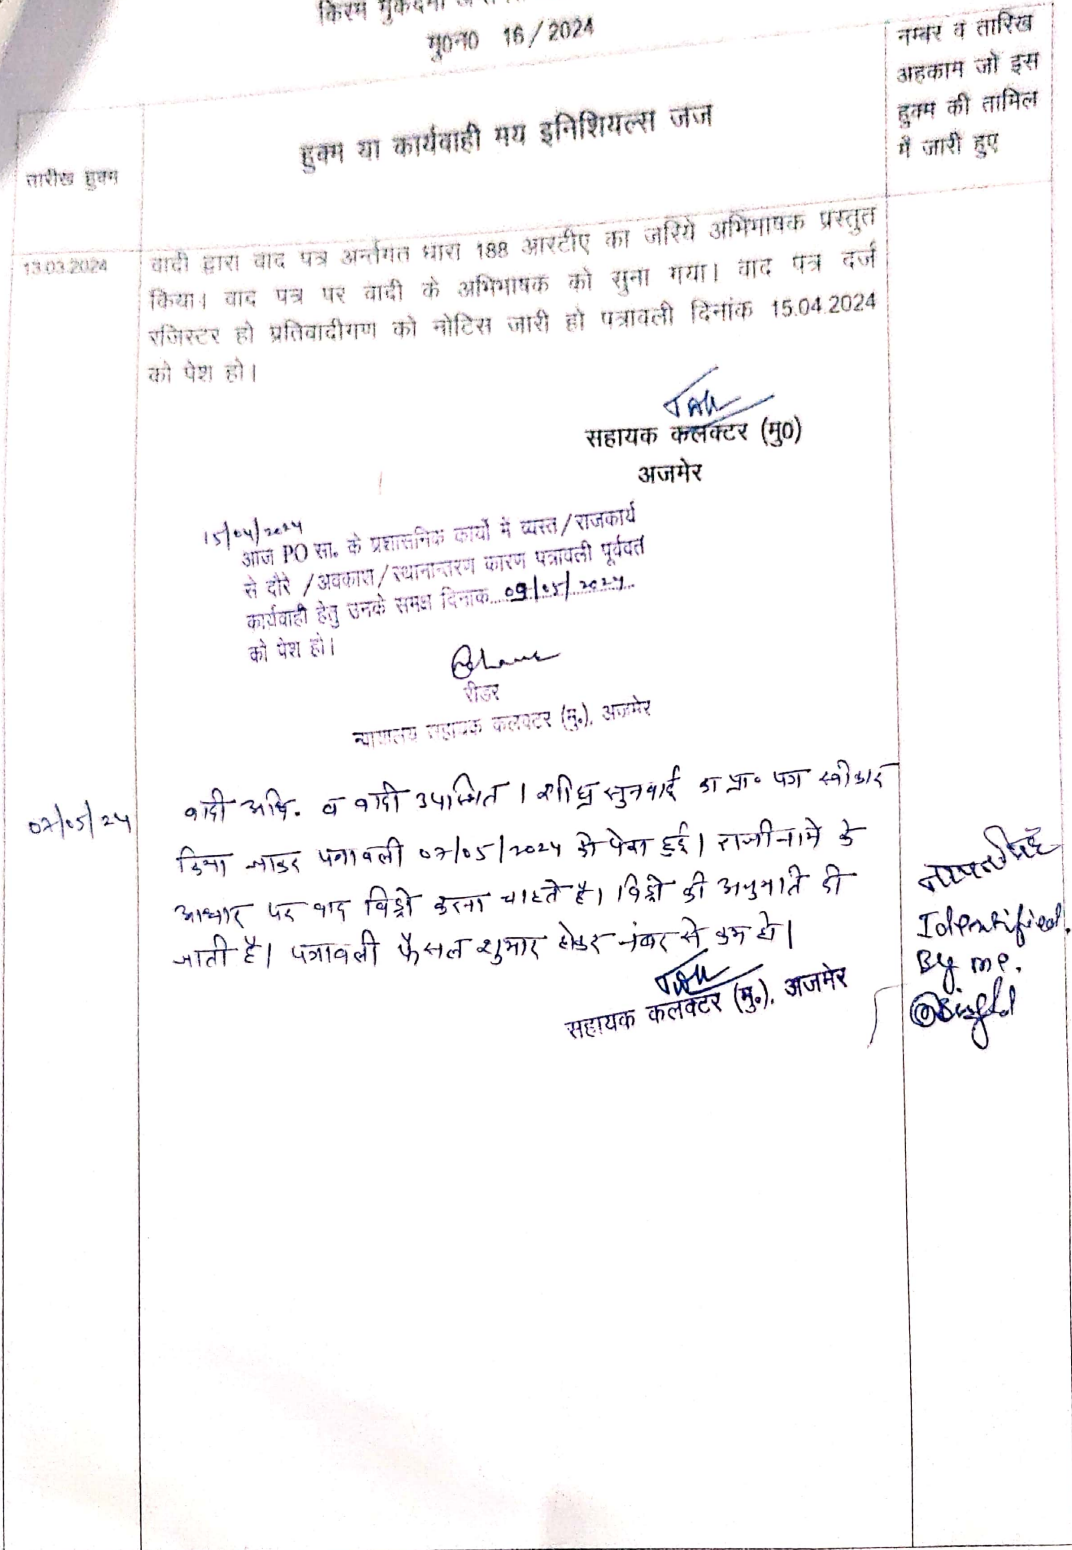 किस्म मुकदमा
मु0न0 16/2024
नम्बर व तारिख
अहकाम जो इस
हुक्म की तामिल
में जारी हुए
हुक्म या कार्यवाही मय इनिशियल्स जज
तारीख हुक्म
13.03.2024
वादी द्वारा वाद पत्र अर्न्तगत धारा 188 आरटीए का जरिये अभिभाषक प्रस्तुत
किया। वाद पत्र पर वादी के अभिभाषक को सुना गया। वाद पत्र दर्ज
रजिस्टर हो प्रतिवादीगण को नोटिस जारी हो पत्रावली दिनांक 15.04.2024
को पेश हो।
सहायक कलक्टर (मु0)
अजमेर
15/04/2024
आज PO सा. के प्रशासनिक कार्यो में व्यस्त/राजकार्य
से दौरे /अवकाश/स्थानान्तरण कारण पत्रावली पूर्ववत
कार्यवाही हेतु उनके समक्ष दिनाक...09/05/2024..
को पेश हो।
रीडर
न्यायालय सहायक कलक्टर (मु.), अजमेर
07/05/24
वादी अधि. व वादी उपस्थित। शीघ्र सुनवाई का प्रा० पत्र स्वीकार
किया जाकर पत्रावली 07/05/2024 को पेश हुई। राजीनामे के
आधार पर वाद विड्रो करना चाहते है। विड्रो की अनुमति दी
जाती है। पत्रावली फैसल शुमार होकर नंबर से कम हो।
सहायक कलक्टर (मु.), अजमेर
Identified
By me.